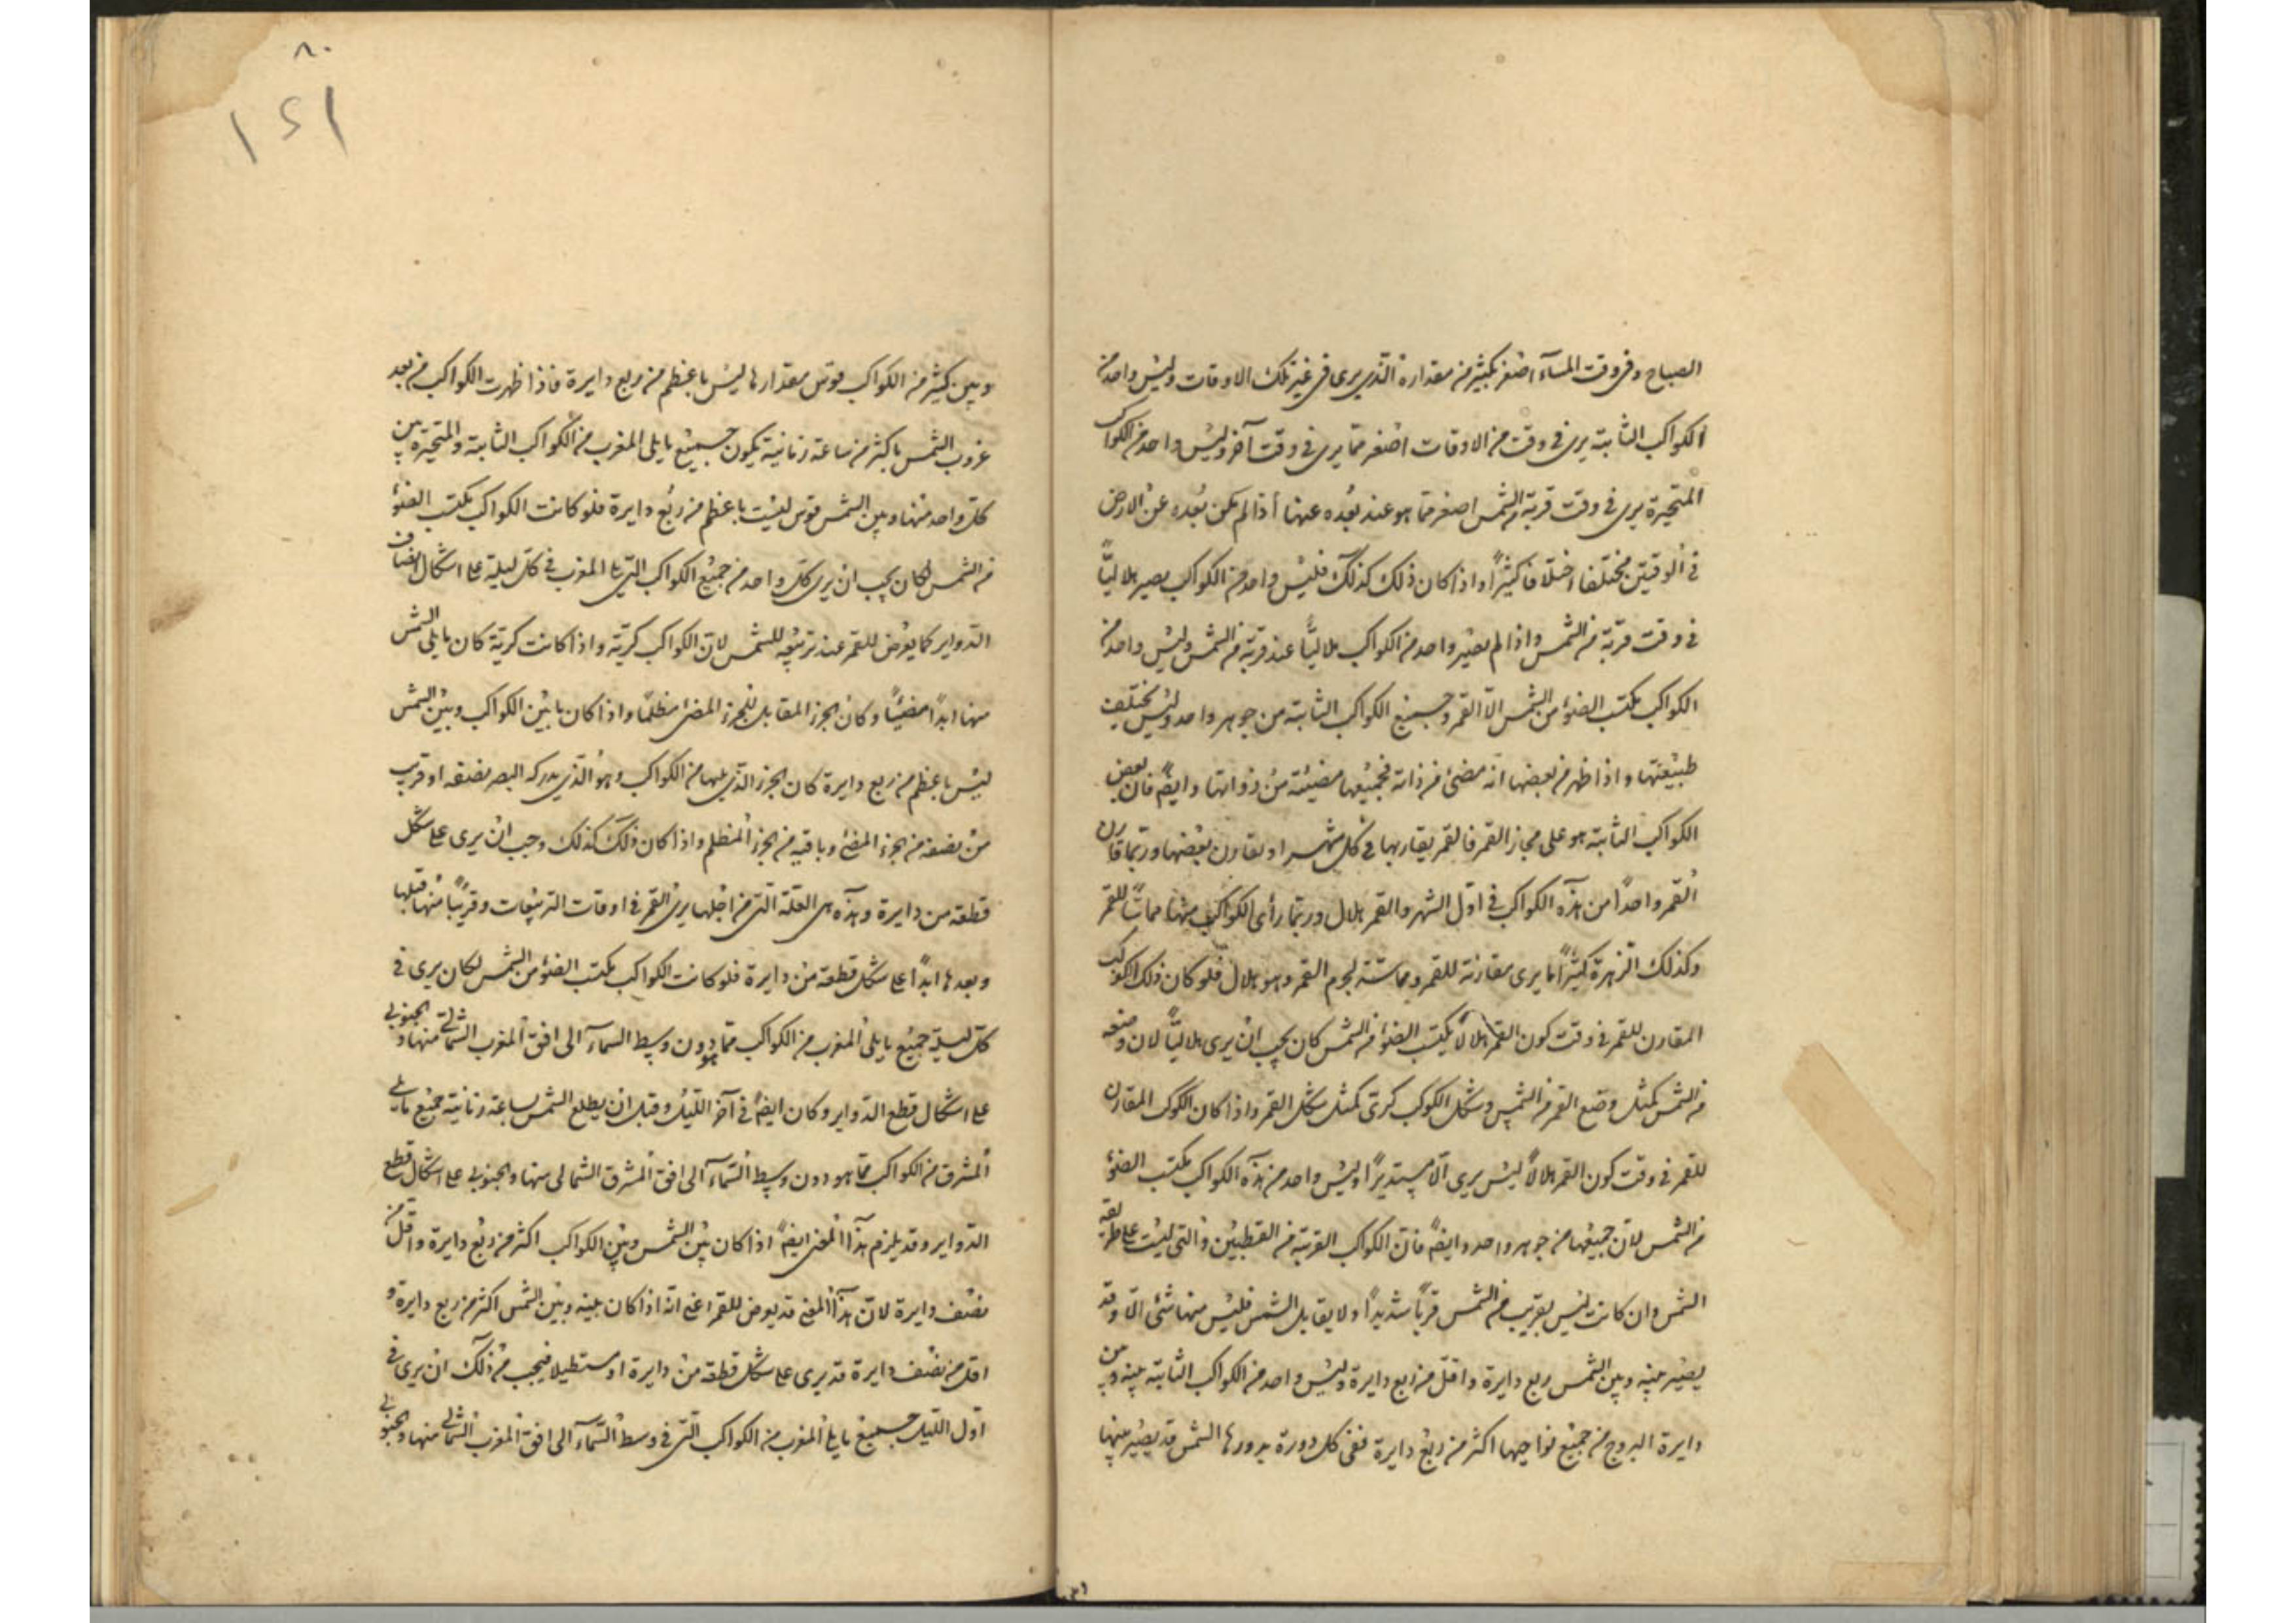 الصباح وفى وقت المسآء اصغر بكثير من مقداره الذى يرى فى غير تلك الاوقات وليس واحد من
الكواكب الثابتة يرى فى وقت من الاوقات اصغر مما يرى فى وقت آخر وليس واحد من الكواكب
المتحيرة يرى فى وقت قربة من الشمس اصغر مما هو عند بُعده عنها اذا لم يكن بُعده عن الارض
فى الوقتين مختلفا اختلافا كثيراً واذا كان ذلك كذلك فليس واحد من الكواكب يصير هلالياً
فى وقت قربة من الشمس واذا لم يصير واحد من الكواكب هلالياً عند قربة من الشمس وليس واحد من
الكواكب يكتسب الضوء من الشمس الا القمر وجميع الكواكب الثابتة من جوهر واحد وليس يختلف
طبيعتها واذا ظهر من بعضها انه مضئ من ذاته فجميعها مضيئة من ذواتها وايضً فان بعض
الكواكب الثابتة هو على مجاز القمر فالقمر يقاربها فى كل شهر او يقارن بعضها وربما قارن
القمر واحداً من هذه الكواكب فى اول الشهر والقمر هلال وربما رأى الكواكب منها مماساً للقمر
وكذلك الزهرة كثيراً ما يرى مقارنة للقمر ومماسة لجرم القمر وهو هلال فلو كان ذلك الكوكب
المقارن للقمر فى وقت كون القمر هلالاً يكتسب الضوء من الشمس كان يجب ان يرى هلالياً لان وضعه
من الشمس كمثل وضع القمر من الشمس وشكل الكوكب كرى كمثل شكل القمر واذا كان الكوكب المقارن
للقمر فى وقت كون القمر هلالاً ليس يرى الا مستديراً وليس واحد من هذه الكواكب يكتسب الضوء
من الشمس لان جميعها من جوهر واحد وايضً فان الكواكب القريبة من القطبين والتى ليست على طريقة
الشمس وان كانت ليس بقريب من الشمس قرباً شديداً ولا يقابل الشمس فليس منها شئ الا وقد
يصير بينه وبين الشمس ربع دايرة واقل من ربع دايرة وليس واحد من الكواكب الثابتة بينه وبين
دايرة البروج من جميع نواحيها اكثر من ربع دايرة ففى كل دورة يدورها الشمس قد يصير بينها
٨٠
١٤١
وبين كثير من الكواكب قوس مقدارها ليس باعظم من ربع دايرة فاذا ظهرت الكواكب من بعد
غروب الشمس باكثر من ساعة زمانية يكون جميع ما يلى المغرب من الكواكب الثابتة والمتحيرة بين
كل واحد منها وبين الشمس قوس ليست باعظم من ربع دايرة فلو كانت الكواكب يكتسب الضوء
من الشمس لكان يجب ان يرى كل واحد من جميع الكواكب التى يلى المغرب فى كل ليلة على اشكال انصاف
الدواير كما يعرض للقمر عند تربيعه للشمس لان الكواكب كرية واذا كانت كرية كان ما يلى الشمس
منها ابداً مضيئاً وكان الجزء المقابل للجزء المضئ مظلماً واذا كان ما بين الكواكب وبين الشمس
ليس باعظم من ربع دايرة كان الجزء الذى يليها من الكواكب وهو الذى يدركه البصر نصفه او قريب
من نصفه من الجزء المضئ وباقيه من الجزء المظلم واذا كان ذلك كذلك وجب ان يرى على شكل
قطعة من دايرة وهذه هى العلة التى من اجلها يرى القمر فى اوقات التربيعات وقريباً منها قبلها
وبعدها ابداً على شكل قطعة من دايرة فلو كانت الكواكب يكتسب الضوء من الشمس لكان يرى فى
كل ليلة جميع ما يلى المغرب من الكواكب مما هو دون وسط السمآء الى افق المغرب الشمالى منها والجنوبى
على اشكال قطع الدواير وكان ايضً فى آخر الليل وقبل ان يطلع الشمس بساعة زمانية جميع ما يلى
المشرق من الكواكب مما هو دون وسط السمآء الى افق المشرق الشمالى منها والجنوبى على اشكال قطع
الدواير وقد يلزم هذا المعنى ايضً اذا كان بين الشمس وبين الكواكب اكثر من ربع دايرة واقل من
نصف دايرة لان هذا المعنى قد يعرض للقمر اعنى انه اذا كان بينه وبين الشمس اكثر من ربع دايرة و
اقل من نصف دايرة قد يرى على شكل قطعة من دايرة او مستطيلا فيجب من ذلك ان يرى فى
اول الليل جميع ما يلى المغرب من الكواكب التى فى وسط السمآء الى افق المغرب الشمالى منها والجنوبى